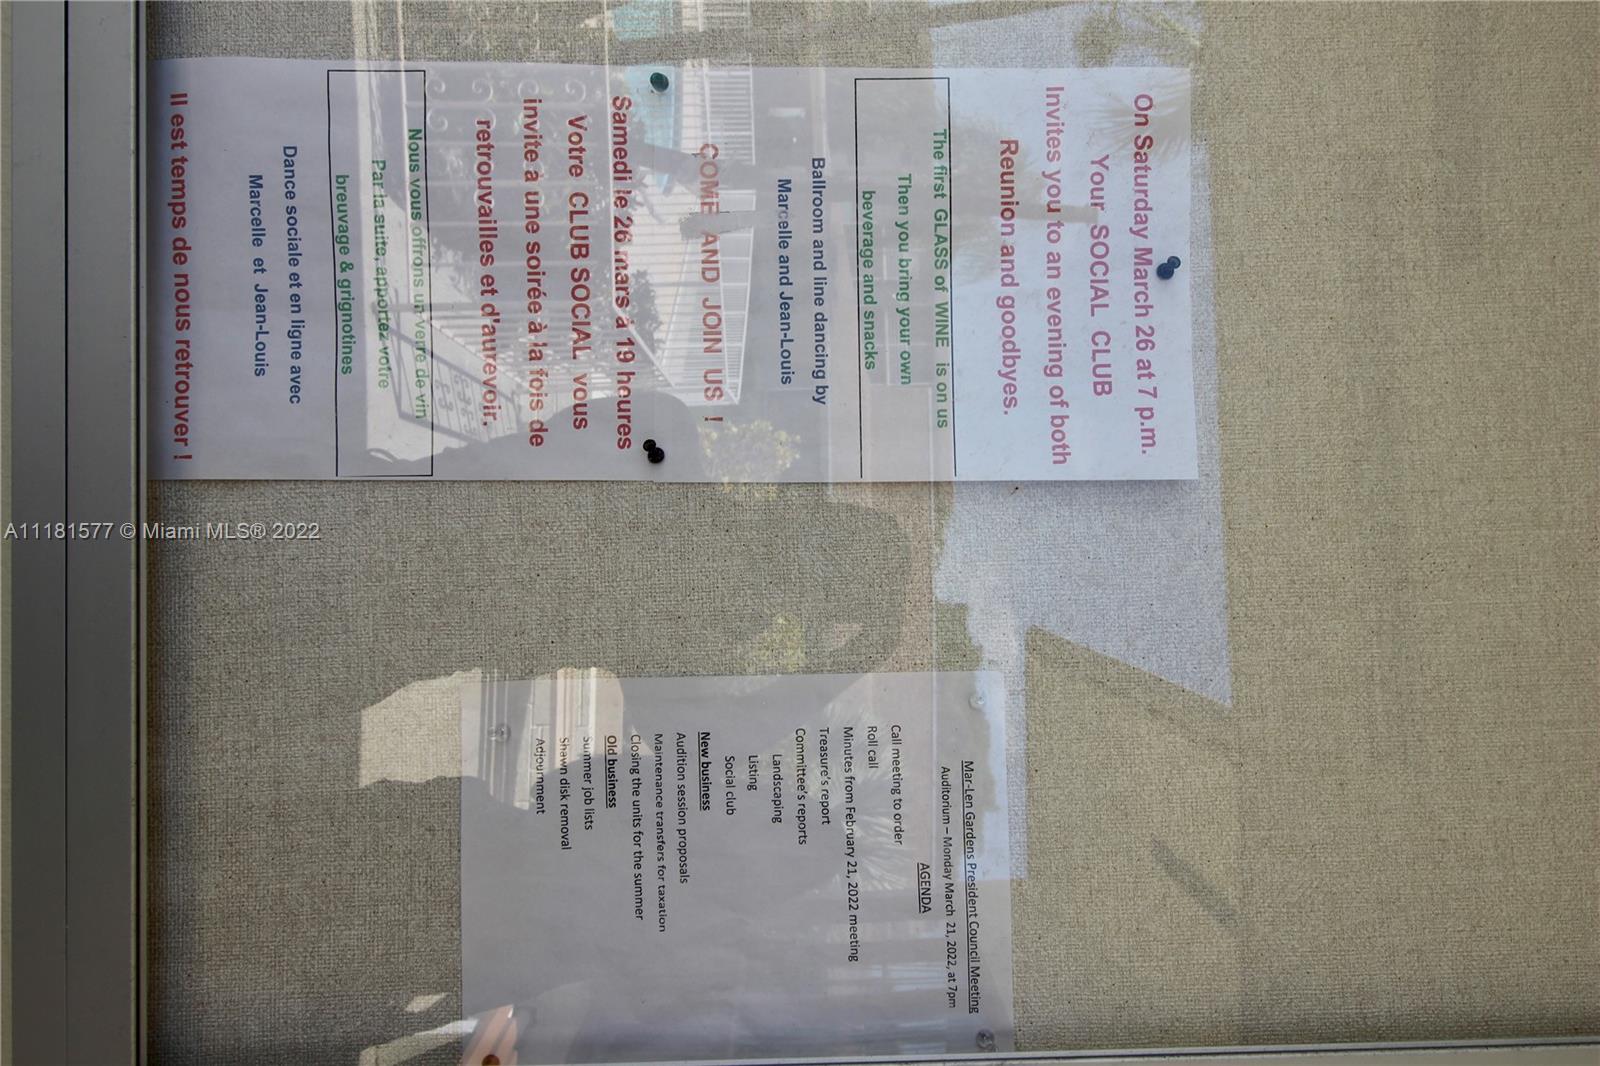 On Saturday March 26 at 7 p.m.
Your SOCIAL CLUB
Invites you to an evening of both
Reunion and goodbyes.
The first GLASS of WINE is on us
Then you bring your own
beverage and snacks
Ballroom and line dancing by
Marcelle and Jean-Louis
COME AND JOIN US !
Samedi le 26 mars à 19 houres
Votre CLUB SOCIAL vous
invite à une soirée à la fois de
retrouvailles et d'aurevoir.
Nous vous offrons un verre de vin
Par la suite, apportez votre
breuvage & grignotines
Dance sociale et en ligne avec
Marcelle et Jean-Louis
Il est temps de nous retrouver !
Mar-Len Gardens President Council Meeting
Auditorium – Monday March 21, 2022, at 7pm
AGENDA
Call meeting to order
Roll call
Minutes from February 21, 2022 meeting
Treasure's report
Committee's reports
Landscaping
Listing
Social club
New business
Audition session proposals
Maintenance transfers for taxation
Closing the units for the summer
Old business
Summer job lists
Shawn disk removal
Adjournment
A11181577 © Miami MLS® 2022